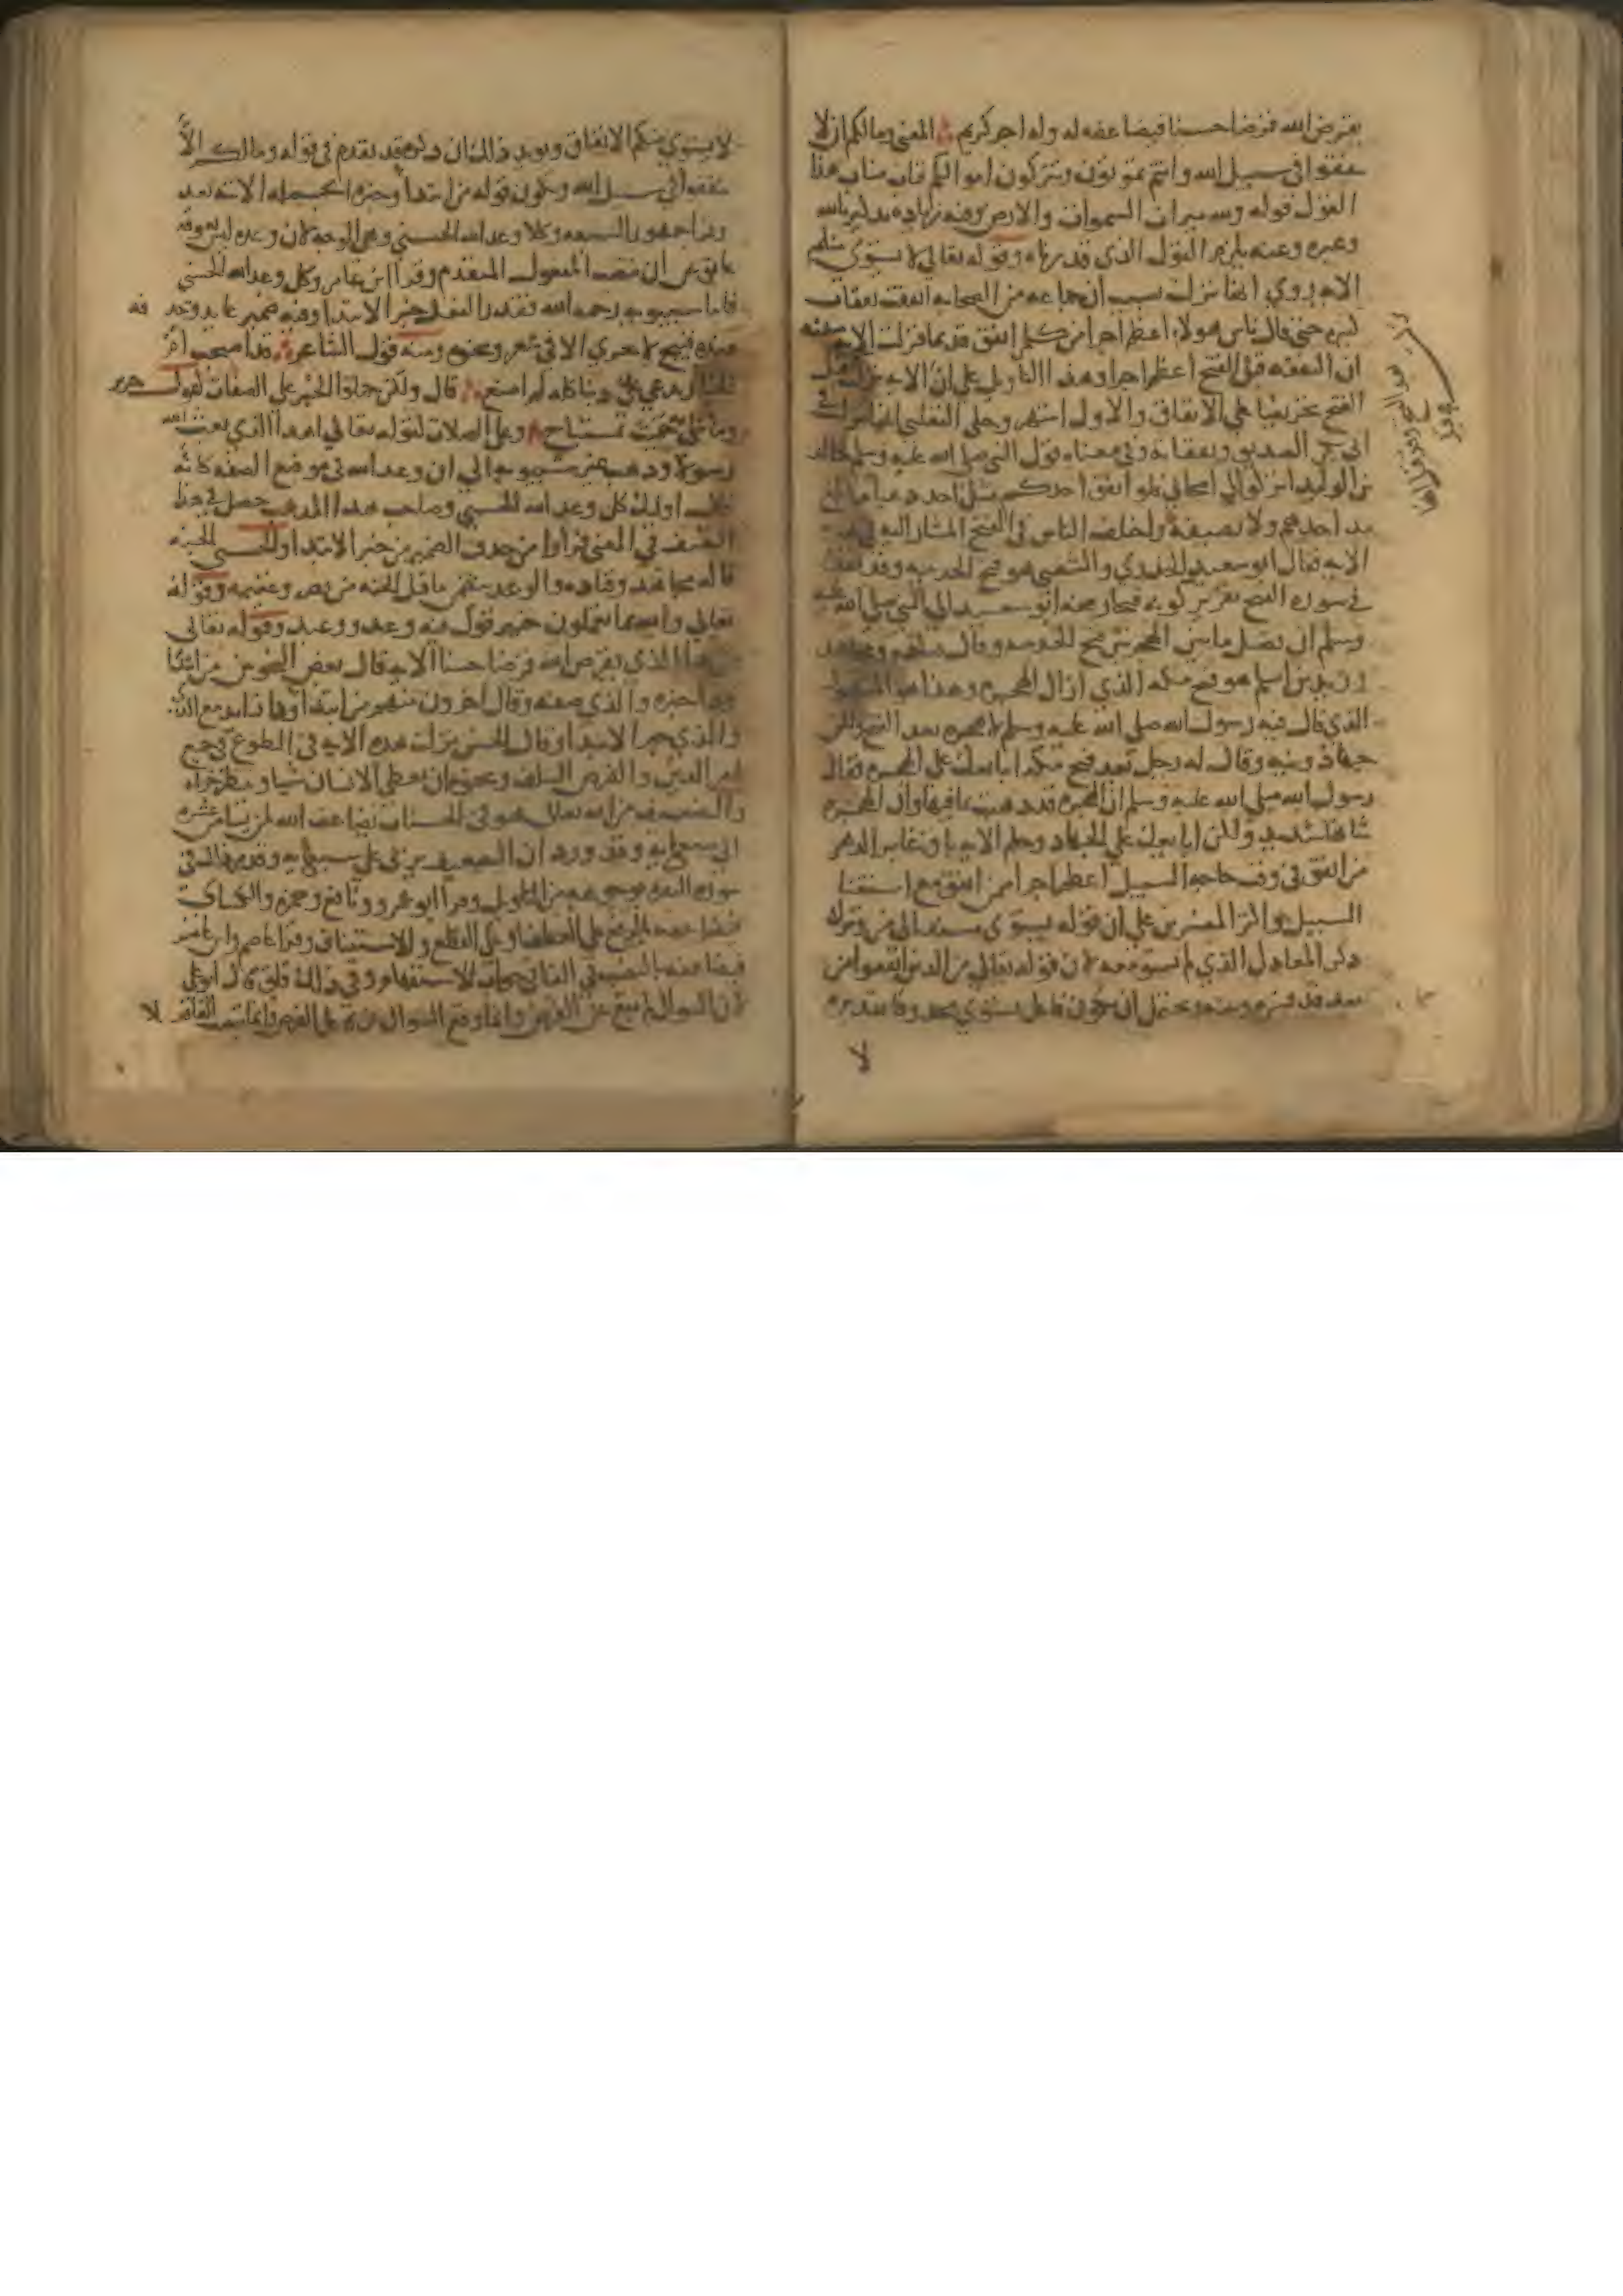 يقرض الله قرضا حسنا فيضاعفه له وله اجر كريم المعنى وما لكم ان لا
تنفقوا في سبيل الله وانتم تموتون وتتركون اموالكم فناب مناب هذا
القول قوله ولله ميراث السموات والارض وفيه زيادة تذكير بالله
وعبره وعنه يلزم القول الذي قدرناه وقوله تعالى لا يستوي منكم
الايه روي انها نزلت بسبب ان جماعه من الصحابه انفقت نفقات
كثيره حتى قال ناس هولاء اعظم اجرا من كل من انفق قديما فنزلت الايه مبينه
ان النفقه قبل الفتح اعظم اجرا وهذا التاويل على ان الايه نزلت بعد
الفتح تحريضا على الانفاق والاول اشهر وحكى الثعلبي انها نزلت في
ابي بكر الصديق ونفقاته وفي معناه قول النبي صلى الله عليه وسلم لخالد
بن الوليد اتركوا لي اصحابي فلو انفق احدكم مثل احد ذهبا ما بلغ
مد احدهم ولا نصيفه واختلف الناس في الفتح المشار اليه في هذه
الايه فقال ابو سعيد الخدري والشعبي هو فتح الحديبيه وقد تقدم
في سورة الفتح تقرير كونه فتحا ورفعه ابو سعيد الى النبي صلى الله عليه
وسلم ان افضل ما بين الهجرتين فتح الحديبيه وقال قتاده ومجاهد
وزيد بن اسلم هو فتح مكه الذي ازال الهجره وهذا هو المشهور
الذي قال فيه رسول الله صلى الله عليه وسلم لا هجره بعد الفتح ولكن
جهاد ونيه وقال له رجل بعد فتح مكه ابايعك على الهجره فقال
رسول الله صلى الله عليه وسلم ان الهجره قد ذهبت بما فيها وان الهجره
شانها شديد ولكن ابايعك على الجهاد وحكم الايه باق غابر الدهر
من انفق في وقت حاجه السبيل اعظم اجرا ممن انفق مع استغنا
السبيل واكثر المفسرين على ان قوله يستوي مسند الى من وترك
ذكر المعادل الذي لا يستوي معه لان قوله تعالى من الذين انفقوا من
بعد قد فسره وبينه ويحتمل ان يكون فاعل يستوي محذوفا تقديره
لا
لا يستوي منكم الانفاق ويويد ذلك ان ذكره قد تقدم في قوله وما لكم الا
تنفقوا في سبيل الله ويكون قوله من ابتدا وخبره الجمله الاتيه بعد
وقرا جمهور السبعه وكلا وعد الله الحسنى وهي الوجه لان وعد ليس يعوقه
عايق عن ان ينصب المفعول المتقدم وقرا ابن عامر وكل وعد الله الحسنى
فاما سيبويه رحمه الله فقدر الفعل خبر الابتدا وفيه ضمير عايد وحذفه
عنده قبيح لا يجري الا في شعر ونحوه ومنه قول الشاعر قد اصبحت ام
الخيار تدعي علي ذنبا كله لم اصنع قال ولكن حملوا الخبر على الصفات كقول جرير
وما شيء حميت بمستباح وعلى الصلات كقوله تعالى اهذا الذي بعث الله
رسولا وذهب غير سيبويه الى ان وعد الله في موضع الصفه كانه
قال اولئك كل وعد الله الحسنى وصاحب هذا المذهب حصل في هذا
التعسف في المعنى فرارا من حذف الضمير من خبر الابتدا والحسنى الجنه
قاله مجاهد وقتاده والوعد يتضمن ما قبل الجنه من نصر وغنيمه وقوله
تعالى والله بما تعملون خبير قول فيه وعد ووعيد وقوله تعالى
من ذا الذي يقرض الله قرضا حسنا الايه قال بعض النحويين من ابتدا
وذا خبره والذي صفته وقال اخرون منهم من ابتدا وذا زايد مع الذي
والذي خبر الابتدا وقال الحسن نزلت هذه الايه في التطوع في جميع
امر الدين والقرض السلف ونحوه ان يعطي الانسان شيا وينتظر جزاه
والتضعيف من الله تعالى هو في الحسنات يضاعف الله لمن يشا من عشره
الى سبعمايه وقد ورد ان التضعيف يربى على سبعمايه وقد مر ذلك في
سورة البقره بوجوهه من التاويل وقرا ابو عمرو ونافع وحمزه والكساي
فيضاعفه بالرفع على العطف او على القطع والاستيناف وقرا عاصم وابن عامر
فيضاعفه بالنصب في الفا في جواب الاستفهام وفي ذلك قلق قال ابو علي
لان السوال لم يقع عن القرض وانما وقع السوال عن فاعل القرض وانما تنصب الفا فعلا